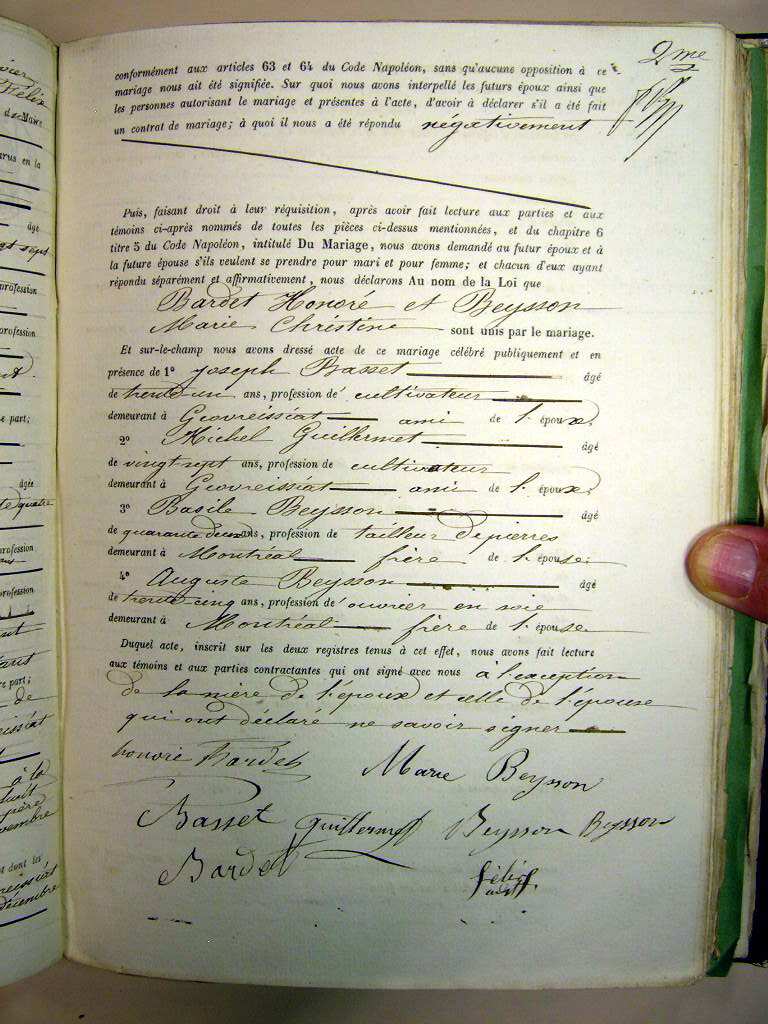 2me
conformément aux articles 63 et 64 du Code Napoléon, sans qu'aucune opposition à ce
mariage nous ait été signifiée. Sur quoi nous avons interpellé les futurs époux ainsi que
les personnes autorisant le mariage et présentes à l'acte, d'avoir à déclarer s'il a été fait
un contrat de mariage; à quoi il nous a été répondu négativement
Puis, faisant droit à leur réquisition, après avoir fait lecture aux parties et aux
témoins ci-après nommés de toutes les pièces ci-dessus mentionnées, et du chapitre 6
titre 5 du Code Napoléon, intitulé Du Mariage, nous avons demandé au futur époux et à
la future épouse s'ils veulent se prendre pour mari et pour femme; et chacun d'eux ayant
répondu séparément et affirmativement, nous déclarons Au nom de la Loi que
Bardet Honoré et Beysson
Marie Christine sont unis par le mariage.
Et sur-le-champ nous avons dressé acte de ce mariage célébré publiquement et en
présence de 1o joseph Basset âgé
de trente un ans, profession de cultivateur
demeurant à Geovreissiat ami de l'époux;
2o Michel Guillermet âgé
de vingt sept ans, profession de cultivateur
demeurant à Geovreissiat ami de l'époux;
3o Basile Beysson âgé
de quarante deux ans, profession de tailleur de pierres
demeurant à Montréal frère de l'épouse;
4o Auguste Beysson âgé
de trente cinq ans, profession d'ouvrier en soie
demeurant à Montréal frère de l'épouse
Duquel acte, inscrit sur les deux registres tenus à cet effet, nous avons fait lecture
aux témoins et aux parties contractantes qui ont signé avec nous à l'exception
de la mère de l'époux et celle de l'épouse
qui ont déclaré ne savoir signer
honoré Bardet Marie Beysson
Basset Guillermet Beysson Beysson
Bardet